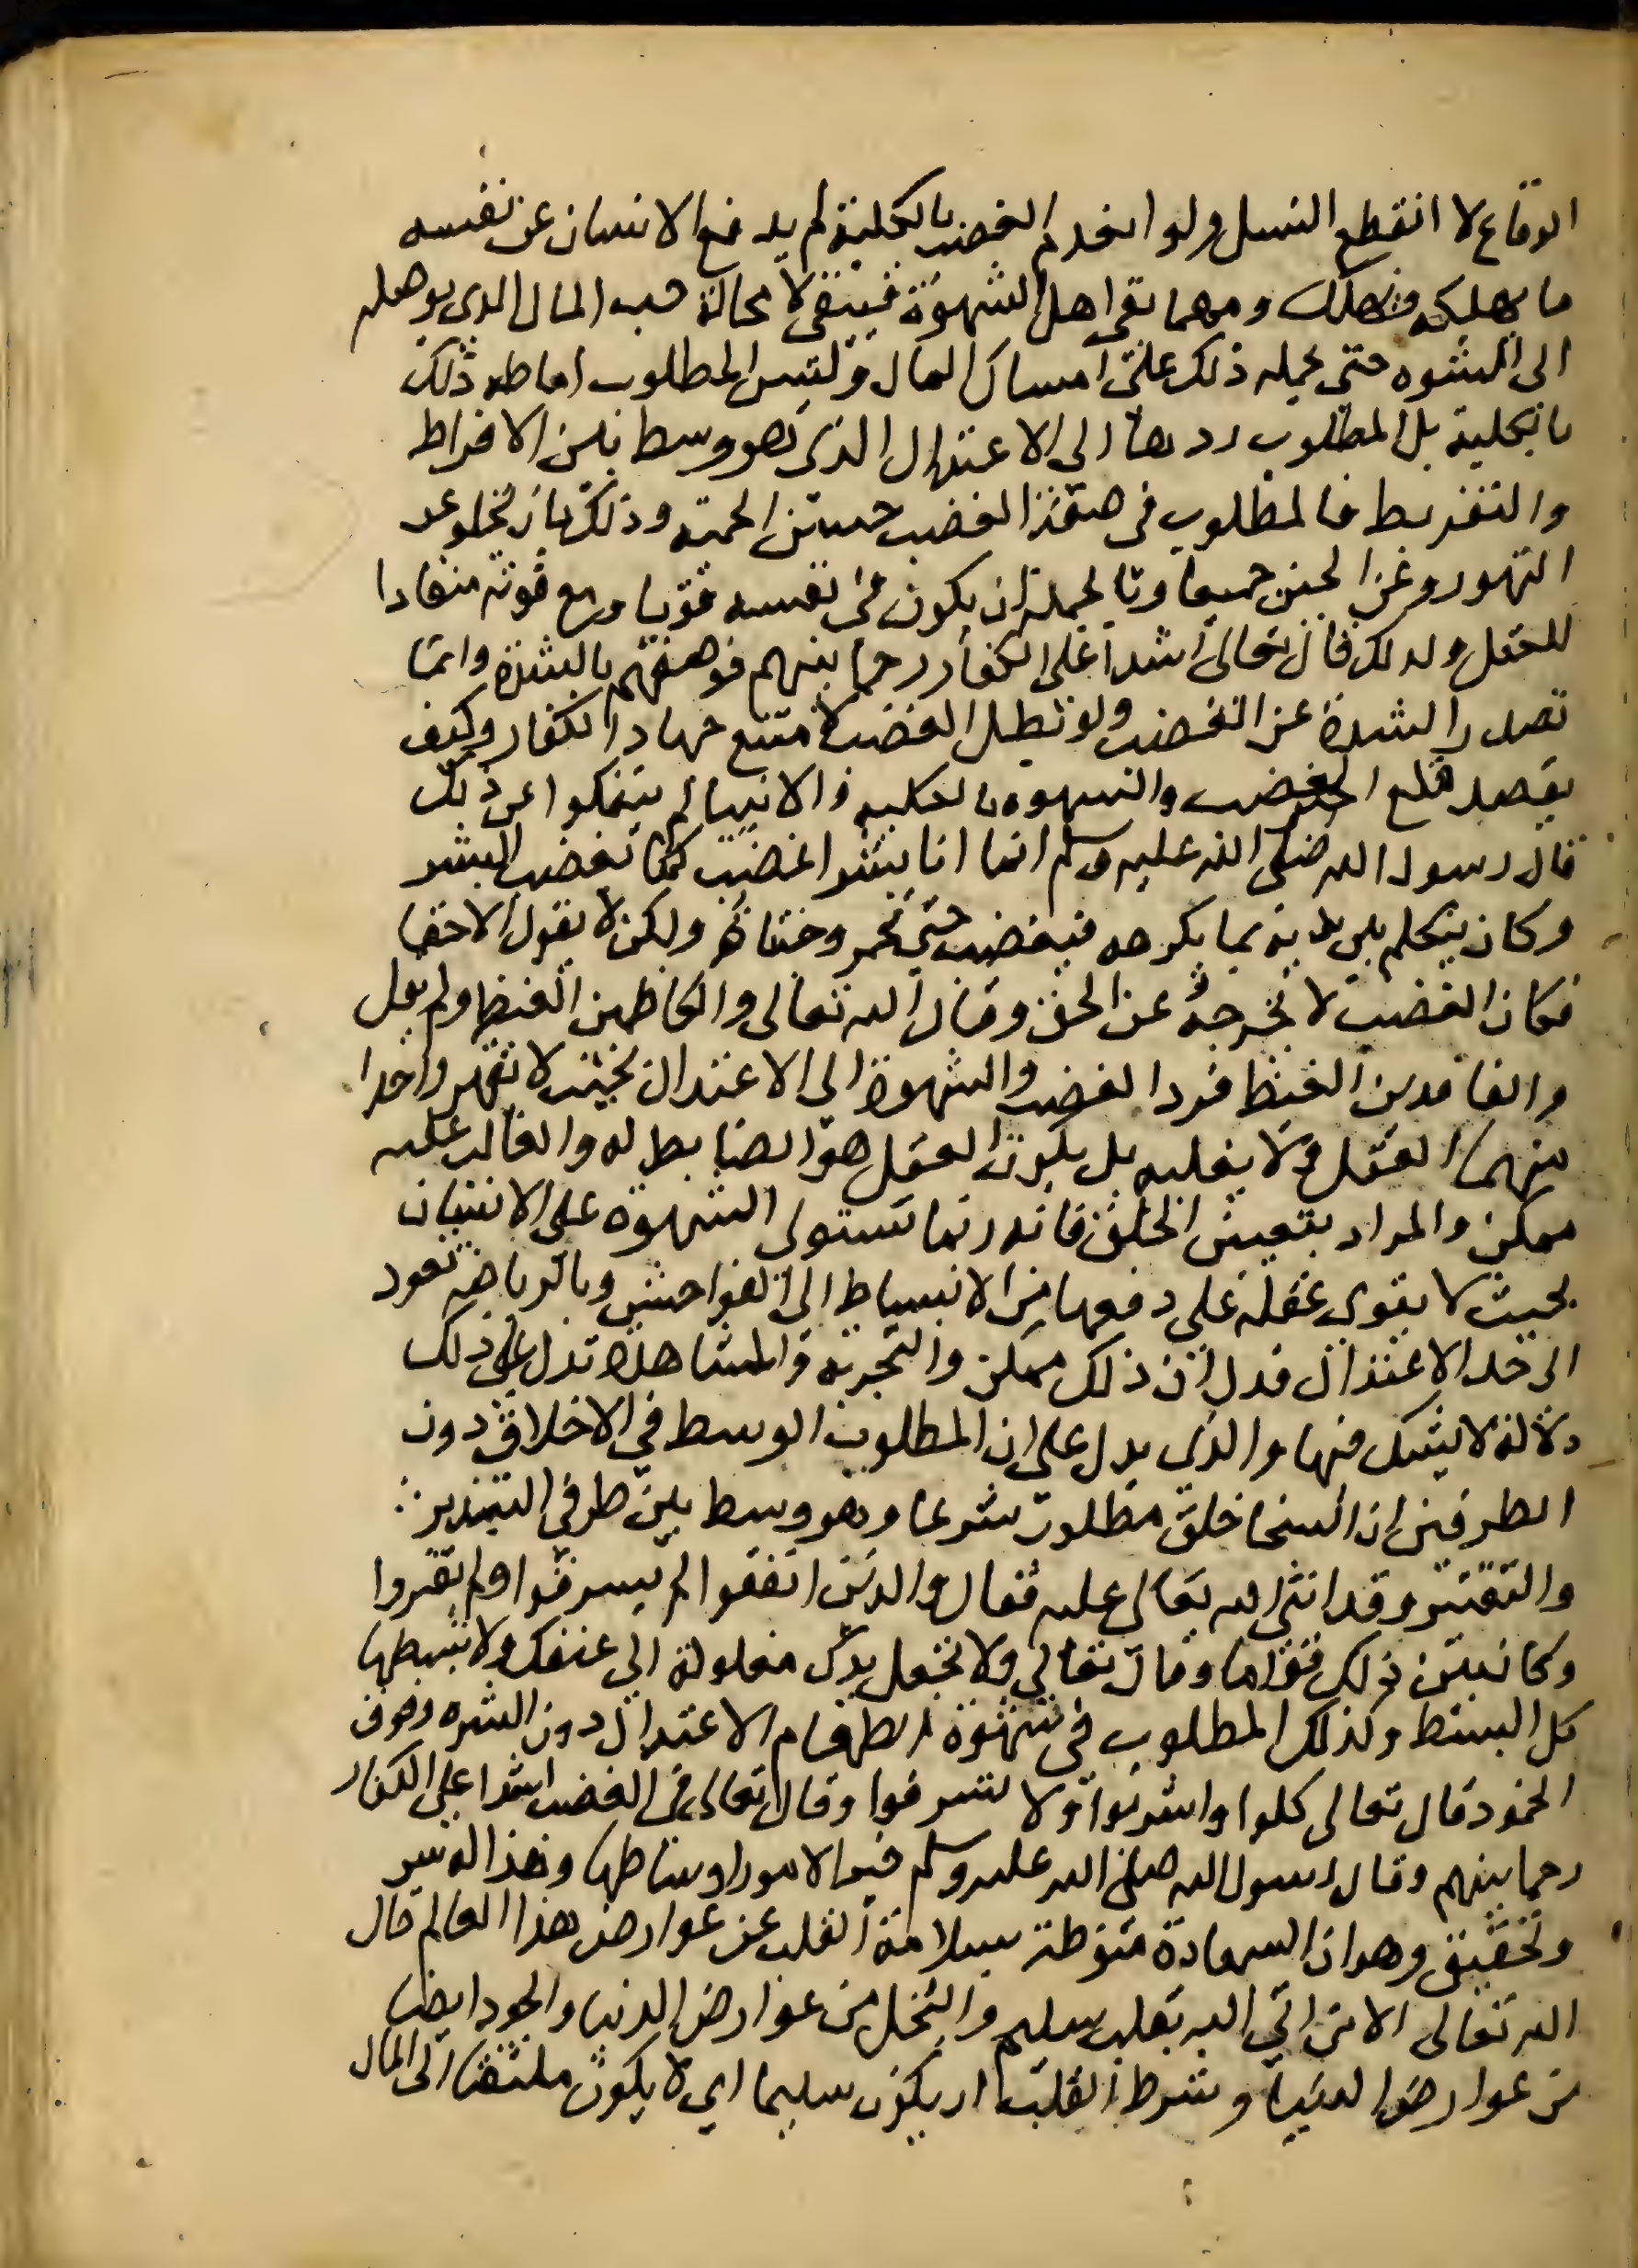 الوقاع لا انقطع النسل ولو انعدم الغضب بالكلية لم يدفع الانسان عن نفسه
ما يهلكه فيهلك ومهما بقى اصل الشهوة فيبقى لا محالة حب المال الذى يوصله
الى الشهوه حتى يحمله ذلك على امساك المال وليس المطلوب اماطه ذلك
بالكلية بل المطلوب ردها الى الاعتدال الذى هو وسط بين الافراط
والتفريط فالمطلوب فى صفة الغضب حسن الحمية وذلك بان يخلو عن
التهور وعن الجبن جميعا وبالجملة ان يكون فى نفسه قويا ومع قوته منقادا
للعقل ولدلك قال تعالى اشدا على الكفار رحما بينهم فوصفهم بالشدة وانما
تصدر الشدة عن الغضب ولو بطل الغضب لامتنع جهاد الكفار وكيف
يقصد قلع الغضب والشهوه بالكليه والانبيا لم ينفكوا عن ذلك
قال رسول الله صلى الله عليه وسلم انما انا بشر اغضب كما يغضب البشر
وكان يتكلم بين يديه بما يكرهه فيغضب حتى تحمر وجنتاه ولكن لا يقول الا حقا
فكان الغضب لا يخرجه عن الحق وقال الله تعالى والكاظمين الغيظ ولم يقل
والفاقدين الغيظ فرد الغضب والشهوة الى الاعتدال بحيث لا يقهر واحدا
منهما العقل ولا يغلبه بل يكون العقل هو الضابط له والغالب عليه
ممكن والمراد بتغيير الخلق فانه ربما تستولى الشهوة على الانسان
بحيث لا يقوى عقله على دفعها من الانبساط الى الفواحش وبالرياضه تعود
الى حد الاعتدال فدل ان ذلك ممكن والتجربة والمشاهدة تدل على ذلك
دلالة لا يشك فيها والذى يدل على ان المطلوب الوسط في الاخلاق دون
الطرفين ان السخا خلق مطلوب شرعا وهو وسط بين طرفي التبذير
والتقتير وقد اثنى الله تعالى عليه فقال والذين انفقوا لم يسرفوا ولم يقتروا
وكان بين ذلك قواما وقال تعالى ولا تجعل يدك مغلولة الى عنقك ولا تبسطها
كل البسط وكذلك المطلوب في شهوة الطعام الاعتدال دون الشره وفوق
الخمود قال تعالى كلوا واشربوا ولا تسرفوا وقال تعالى فى الغضب اشدا على الكفار
رحما بينهم وقال رسول الله صلى الله عليه وسلم خير الامور اوساطها وهذا له سر
وتحقيق وهو ان السعادة منوطة بسلامة القلب عن عوارض هذا العالم قال
الله تعالى الا من اتي الله بقلب سليم والبخل من عوارض الدنيا والجود ايضا
من عوارض الدنيا وشرط القلب ان يكون سليما اي لا يكون ملتفتا الى المال